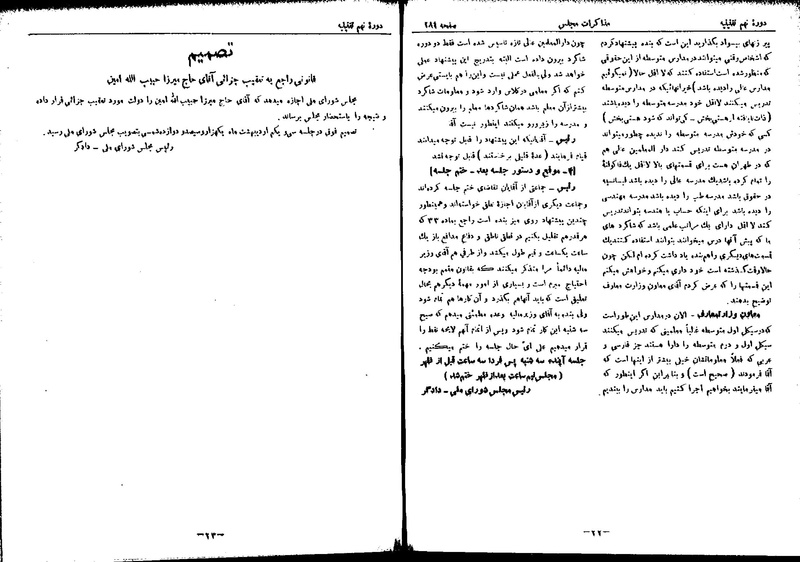 دورهٔ نهم تقنینیه
مذاکرات مجلس
صفحه ۲۸۹
پیر زنهای بیسواد بگذارید این است که بنده پیشنهاد کردم
که اشخاص وقتی میتوانند در مدارس متوسطه از این حقوقی
که منظور شده است استفاده کنند که لااقل حالا (نمیگوئیم
مدارس عالی را دیده باشد) خبر آنهائیکه در مدارس متوسطه
تدریس میکنند لااقل خود مدرسه متوسطه را دیده باشند
(ذات نایافته از هستی بخش - کی تواند که شود هستی بخش)
کسی که خودش مدرسه متوسطه را ندیده چطور میتواند
در مدرسه متوسطه تدریس کند دار المعلمین عالی هم
که در طهران هست برای قسمتهای بالا لااقل یک فاکولتهٔ
را تمام کرده باشد یک مدرسه عالی را دیده باشد لیسانسیه
در حقوق باشد مدرسه طب را دیده باشد مدرسه مهندسی
را دیده باشد برای اینکه حساب یا هندسه بتواند تدریس
کند لااقل دارای یک مراتب علمی باشد که شاگرد های
ما که پیش آنها درس میخوانند بتوانند استفاده کنند یک
قسمت‌های دیگری را هم بنده یاد داشت کرده ام لکن چون
حالا وقت گذشته است خود داری میکنم و خواهش میکنم
این قسمتها را که عرض کردم آقای معاون وزارت معارف
توضیح بدهند.
معاون وزارت معارف - الان در مدارس این طور است
که در سیکل اول متوسطه غالباً معلمینی که تدریس میکنند
سیکل اول و دوم متوسطه را دارا هستند جز فارسی و
عربی که فعلاً معلوماتشان خیلی بیشتر از اینها است که
آقا فرمودند (صحیح است) و بنا براین اگر اینطور که
آقا میفرمایند بخواهیم اجرا کنیم باید مدارس را ببندیم
چون دار المعلمین عالی تازه تاسیس شده است فقط دو دوره
شاگرد بیرون داده است البته بتدریج این پیشنهاد عملی
خواهد شد ولی بالفعل عملی نیست و این را هم بایستی عرض
کنم که اگر معلمی در کلاس وارد شود و معلومات شاگرد
بیشتر از آن معلم باشد همان شاگردها معلم را بیرون میکنند
و مدرسه را زیر و رو میکنند اینطور نیست آقا
رئیس - آقایانیکه این پیشنهاد را قبول میدانند
قیام فرمایند (عدهٔ قلیلی برخاستند) قبل توجه نشد
[۴- موقع و دستور جلسه بعد - ختم جلسه]
رئیس - جماعتی از آقایان تقاضای ختم جلسه کرده‌اند
و جماعت دیگری از آقایان اجازهٔ نطق خواسته‌اند و همینطور
چندین پیشنهاد روی میز بنده است راجع بماده ۳۳ که
هر قدر هم تقلیل بکنیم در نطق ناطق و دفاع مدافع باز یک
ساعت یکساعت و نیم طول میکشد و از طرفی هم آقای وزیر
مالیه دائماً مرا متذکر میکنند که بقانون متمم بودجه
احتیاج مبرم است و بسیاری از امور مهمهٔ دیگر هم بحال
تعلیق است که باید آنها هم بگذرد و آن کارها هم تمام شود
ولی بنده به آقای وزیر مالیه وعده مطمئنی میدهم که صبح
سه شنبه این کار تمام شود و پس از اتمام آنهم لایحه نفط را
قرار میدهیم علی ای حال جلسه را ختم میکنیم.
جلسه آینده سه شنبه پس فردا سه ساعت قبل از ظهر
(مجلس نیم ساعت بعد از ظهر ختم شد)
رئیس مجلس شورای ملی - دادگر
-۲۲-
دورهٔ نهم تقنینیه
تصمیم
قانونی راجع به تعقیب جزائی آقای حاج میرزا حبیب الله امین
مجلس شورای ملی اجازه میدهد که آقای حاج میرزا حبیب الله امین را دولت مورد تعقیب جزائی قرار داده
و نتیجه را باستحضار مجلس برساند.
تصمیم فوق در جلسه سی و یکم اردیبهشت ماه یکهزار و سیصد و دوازده شمسی بتصویب مجلس شورای ملی رسید.
رئیس مجلس شورای ملی - دادگر
-۲۳-